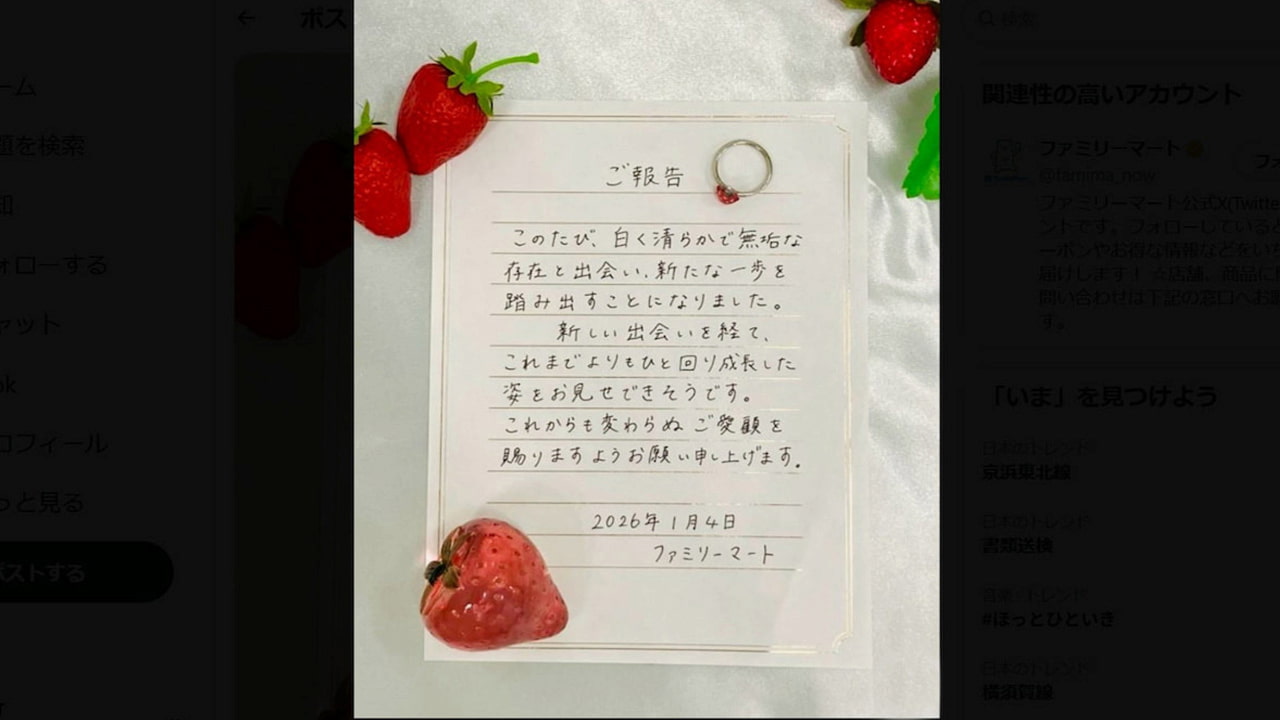 ポス
検索
ーム
題を検索
知
ォローする
ャット
ok
ロフィール
っと見る
ポストする
ご報告
このたび、白く清らかで無垢な
存在と出会い、新たな一歩を
踏み出すことになりました。
新しい出会いを経て、
これまでよりもひと回り成長した
姿をお見せできそうです。
これからも変わらぬご愛顧を
賜りますようお願い申し上げます。
2026年1月4日
ファミリーマート
関連性の高いアカウント
ファミリーマート
@famima_now
フォ
ファミリーマート公式X(Twitte
ントです。フォローしていると
ーポンやお得な情報などをいち
届けします！☆店舗、商品に
問い合わせは下記の窓口へお
す。
「いま」を見つけよう
日本のトレンド
京浜東北線
日本のトレンド
書類送検
音楽・トレンド
#ほっとひといき
日本のトレンド
横須賀線